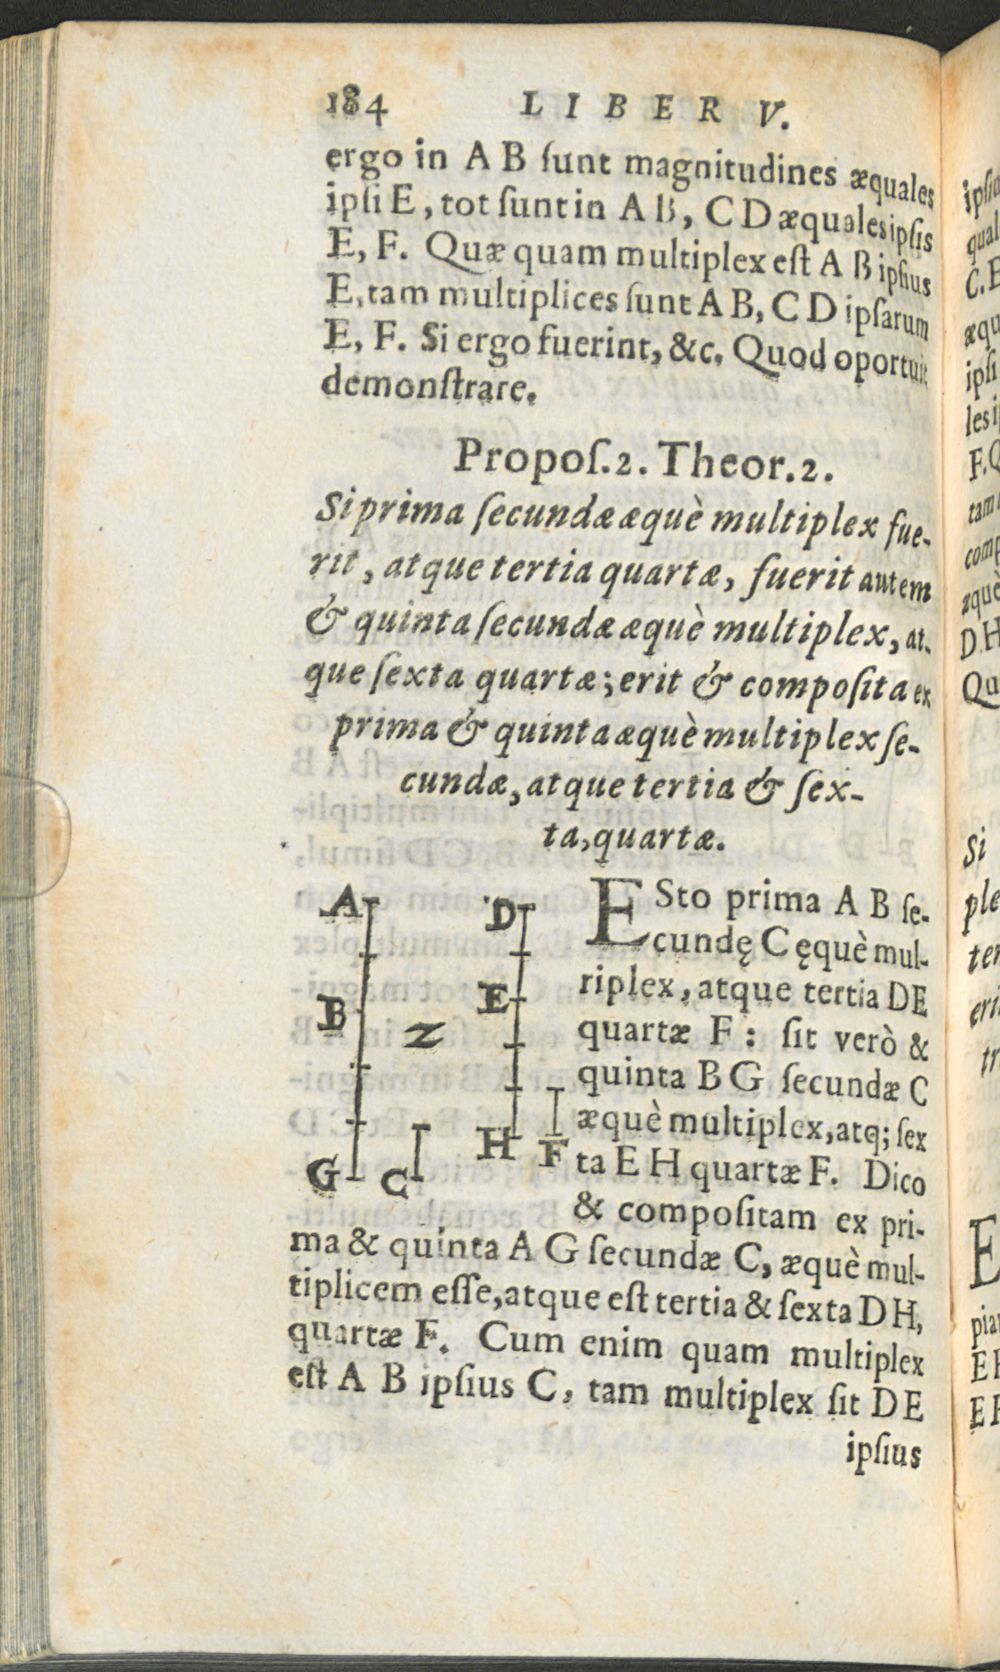 184 LIBER V.
ergo in A B ſunt magnitudines æquales
ipſi E, tot ſunt in A B, C D æquales ipſis
E, F. Quæ quam multiplex eſt A B ipſius
E, tam multiplices ſunt A B, C D ipſarum
E, F. Si ergo fuerint, &c. Quod oportuit
demonſtrare.
Propoſ. 2. Theor. 2.
Si prima ſecundæ æquè multiplex fue-
rit, atque tertia quartæ, fuerit autem
& quinta ſecundæ æquè multiplex, at-
que ſexta quartæ; erit & compoſita ex
prima & quinta æquè multiplex ſe-
cundæ, atque tertia & ſex-
ta, quartæ.
A D
B E
Z
G C H F
ESto prima A B ſe-
cundę C ęquè mul-
riplex, atque tertia DE
quartæ F: ſit verò &
quinta B G ſecundæ C
æquè multiplex, atq; ſex
ta E H quartæ F. Dico
& compoſitam ex pri-
ma & quinta A G ſecundæ C, æquè mul-
tiplicem eſſe, atque eſt tertia & ſexta D H,
quartæ F. Cum enim quam multiplex
eſt A B ipſius C, tam multiplex ſit D E
ipſius
ipſi
C. E
æqu
ipſi
les i
F. Q
tam
comp
æquè
D H
Qu
Si
ple
ter
eri
tr
E
pia